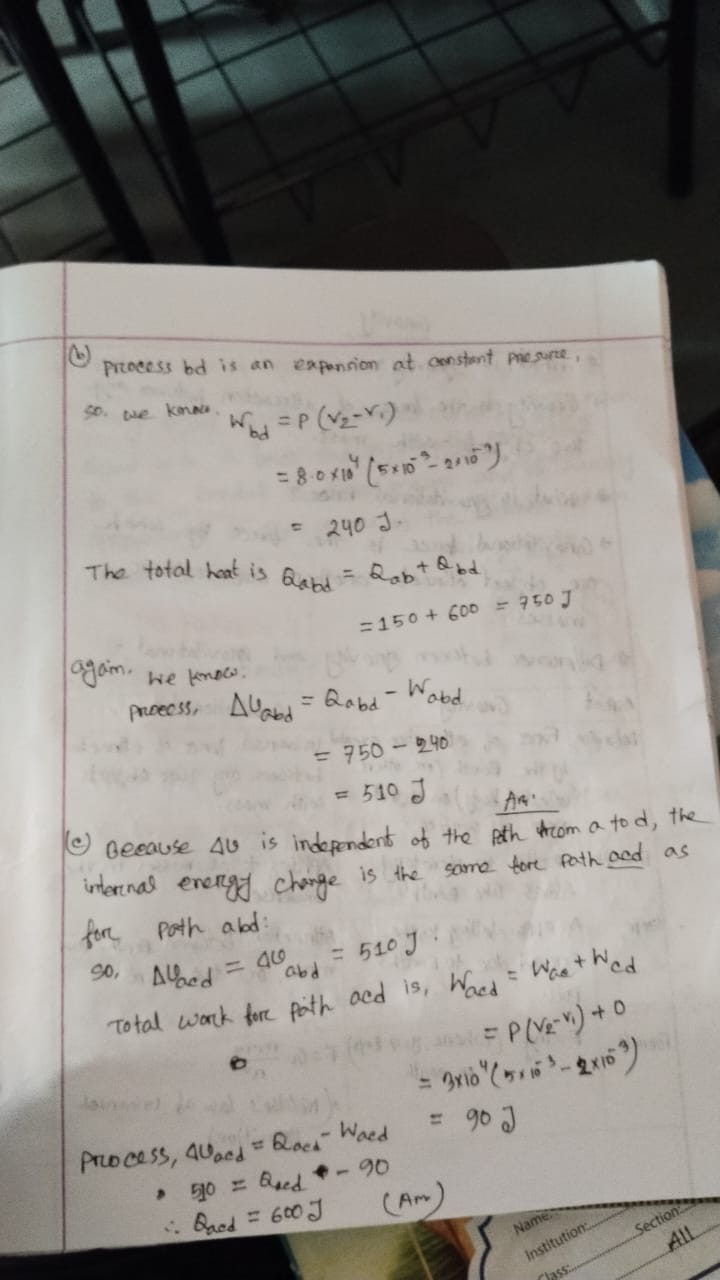 (b) process bd is an expansion at constant pressure,
so, we know. W_bd = P (V₂-V₁)
= 8.0 x 10⁴ (5x10⁻³ - 2x10⁻³)
= 240 J.
The total heat is Q_abd = Q_ab + Q_bd
= 150 + 600 = 750 J
again, we know.
process, ΔU_abd = Q_abd - W_abd
= 750 - 240
= 510 J Ans.
(c) Because ΔU is independent of the path from a to d, the
internal energy change is the same fore path acd as
fore path abd:
so, ΔU_acd = ΔU_abd = 510 J.
Total work fore path acd is, W_acd = W_ac + W_cd
= P(V₂-V₁) + 0
= 3x10⁴ (5x10⁻³ - 2x10⁻³)
= 90 J
process, ΔU_acd = Q_acd - W_acd
510 = Q_acd - 90
∴ Q_acd = 600 J (Ans)
Name:
Institution:
Class:
Section:
All